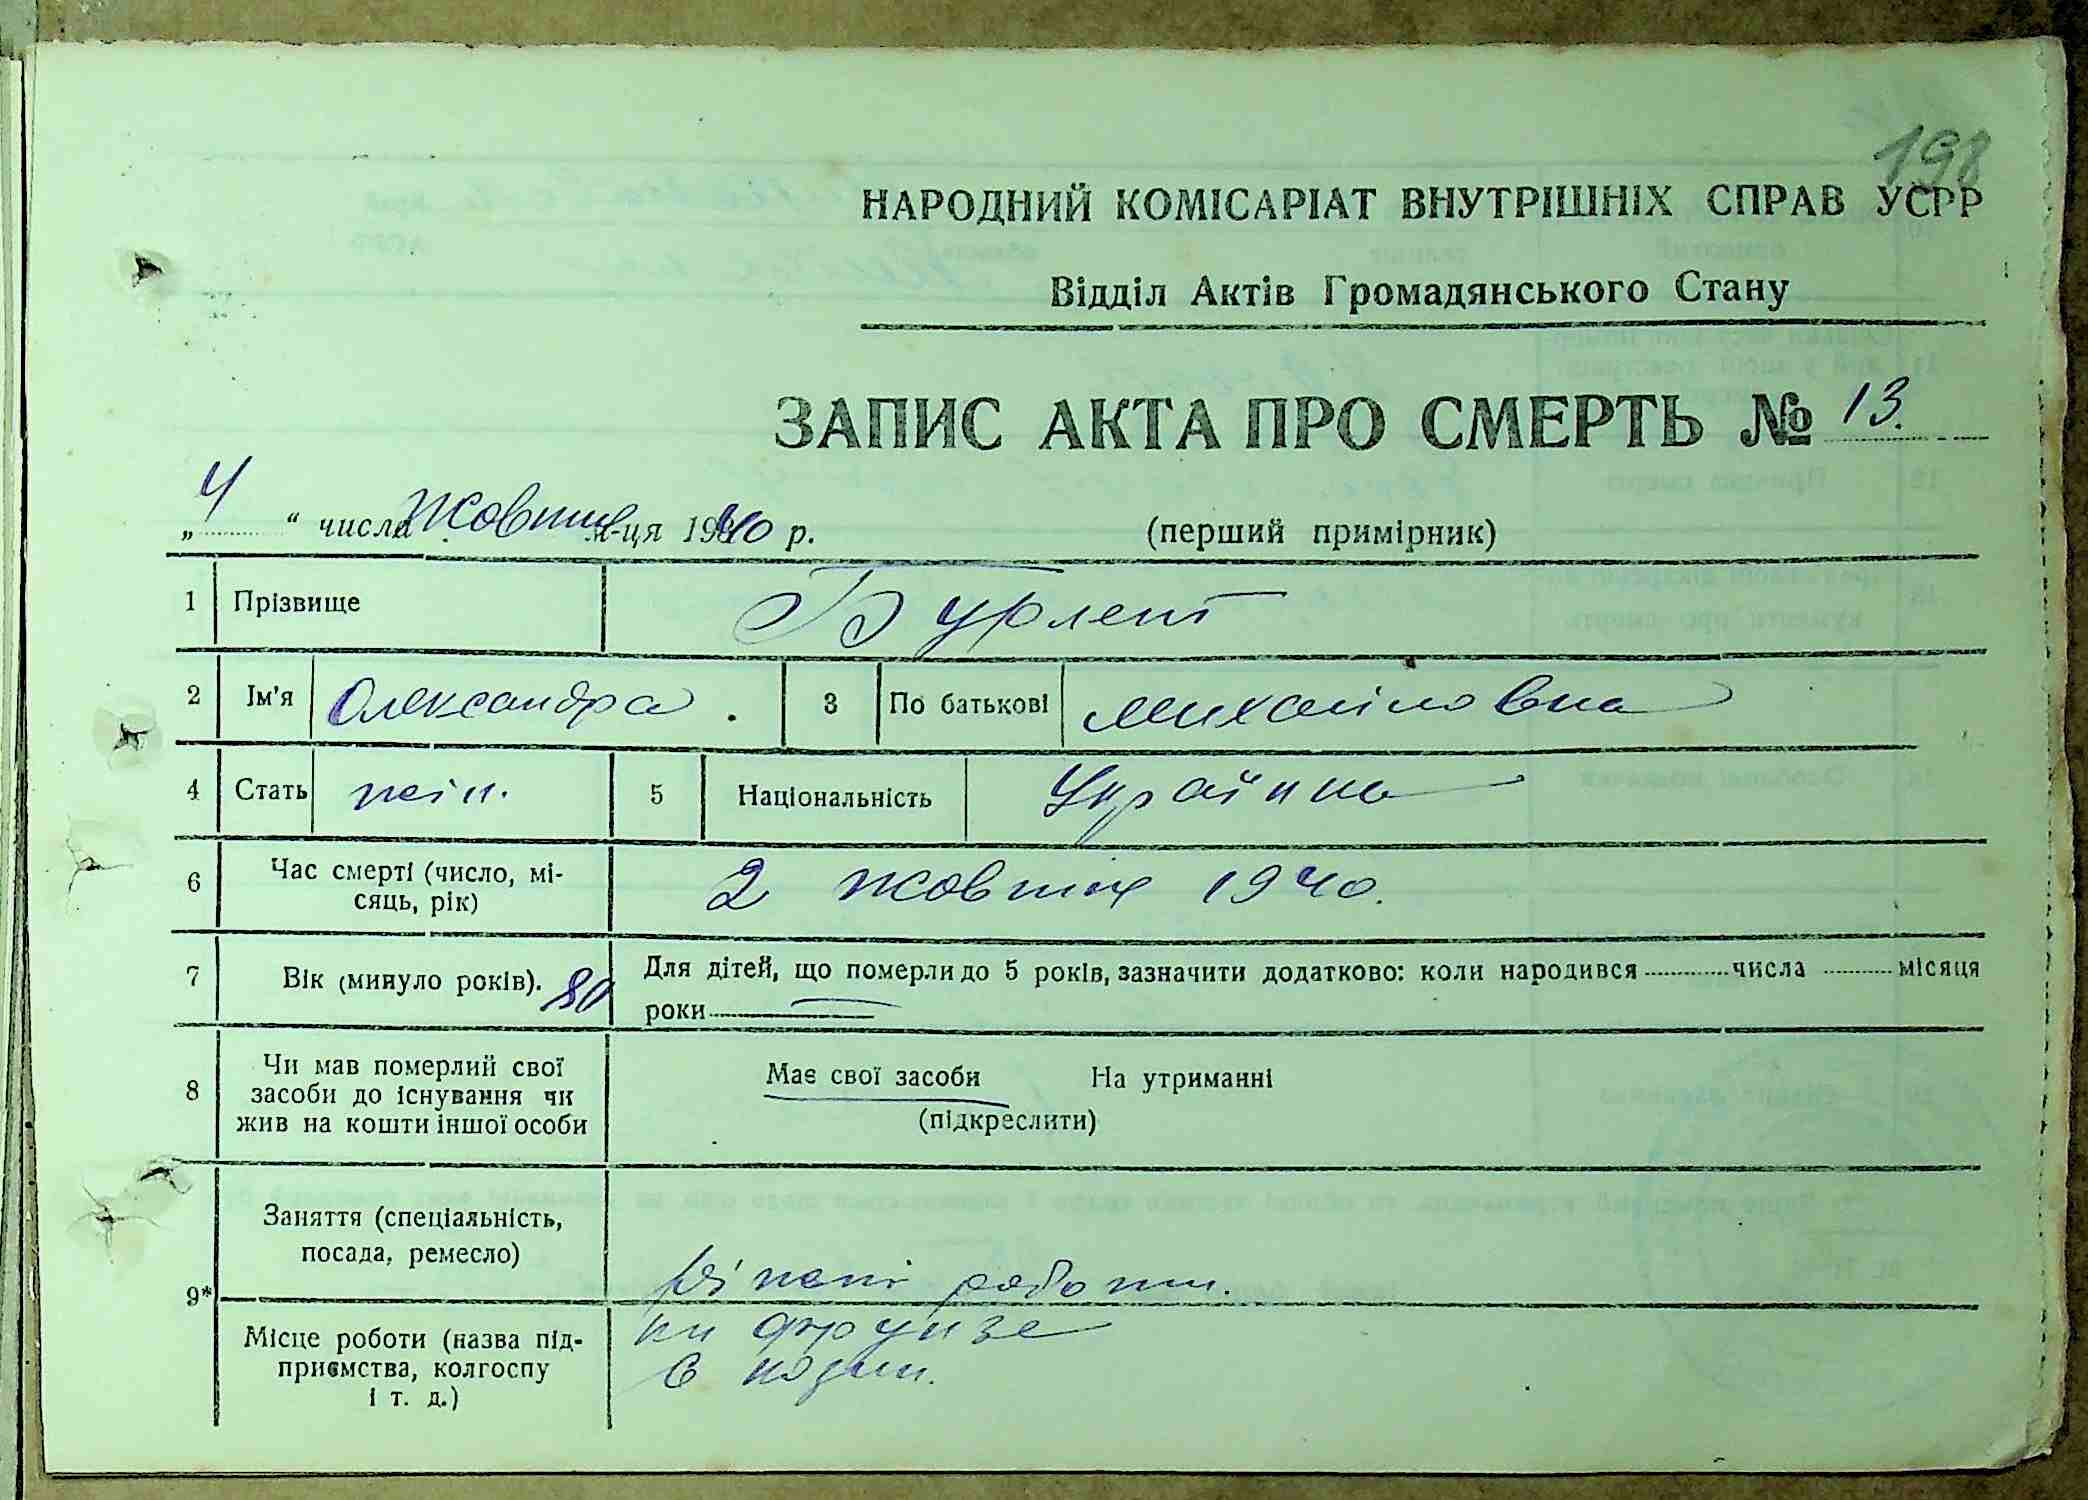 198
НАРОДНИЙ КОМІСАРІАТ ВНУТРІШНІХ СПРАВ УСРР
Відділ Актів Громадянського Стану
ЗАПИС АКТА ПРО СМЕРТЬ № 13.
„4“ числа Жовтня м-ця 1940 р. (перший примірник)
1 Прізвище Бурлент
2 Ім'я Олександра. 3 По батькові Михайловна
4 Стать жін. 5 Національність Українка
6 Час смерті (число, мі-
сяць, рік) 2 жовтня 1940.
7 Вік (минуло років). 80 Для дітей, що померли до 5 років, зазначити додатково: коли народився числа місяця
роки
8 Чи мав померлий свої
засоби до існування чи
жив на кошти іншої особи
Має свої засоби На утриманні
(підкреслити)
9* Заняття (спеціальність,
посада, ремесло) різні роботи.
Місце роботи (назва під-
приємства, колгоспу
і т. д.)
Фрунзе